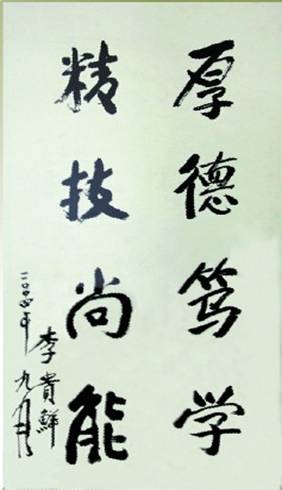 厚德笃学
精技尚能
李贵鲜
二〇〇四年九月